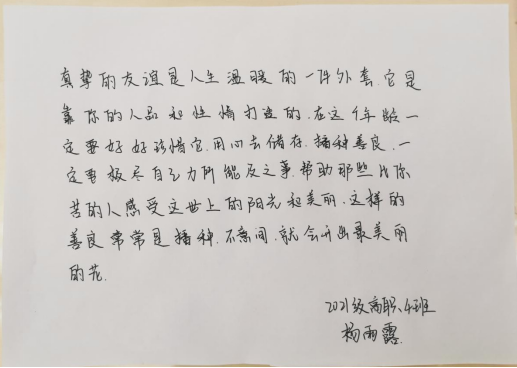 真挚的友谊是人生温暖的一件外套.它是
靠你的人品和性情打造的.在这个年龄一
定要好好珍惜它.用心去储存.播种善良.一
定要极尽自己力所能及之事.帮助那些比你
苦的人感受这世上的阳光和美丽.这样的
善良常常是播种.不意间.就会开出最美丽
的花.
2021级高职.4班
杨雨露.